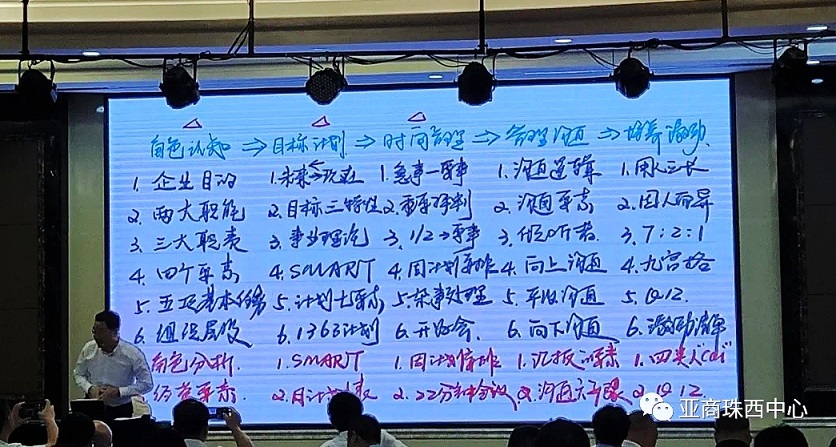 角色认知 → 目标计划 → 时间管理 → 管理沟通 → 培养激励
1. 企业目的 1. 未来→现在 1. 急事—要事 1. 沟通逻辑 1. 用人三长
2. 两大职能 2. 目标三特性 2. 重要 2. 沟通要素 2. 因人而异
3. 三大职表 3. 事业理论 3. 1/2→要事 3. 倾听 3. 7:2:1
4. 四个要素 4. SMART 4. 周计划安排 4. 向上沟通 4. 九宫格
5. 五项基本任务 5. 计划七要素 5. 杂事处理 5. 平级沟通 5. Q12.
6. 组织层级 6. 1363计划 6. 开好会. 6. 向下沟通 6. 激励清单
角色分析. 1. SMART 1. 周计划安排 1. 汇报要素 1. 四类人
要素. 2. 月计划表 2. 22分钟会议 2. 沟通 2. Q12
亚商珠西中心